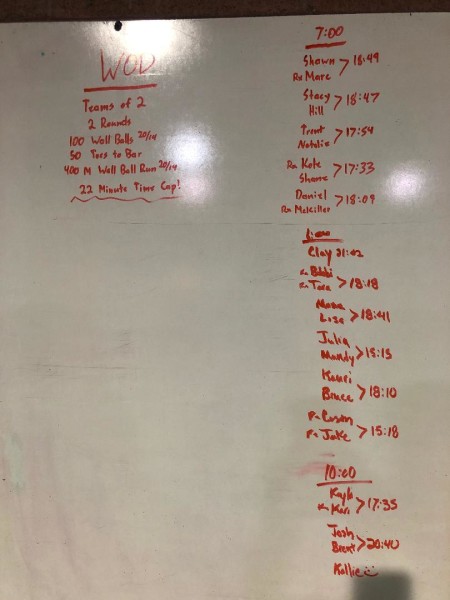 WOD
Teams of 2
2 Rounds
100 Wall Balls 20/14
50 Toes to Bar
400 M Wall Ball Run 20/14
22 Minute Time Cap!
7:00
Shawn
Rx Marc > 18:49
Stacy
Hill > 18:47
Trent
Natalie > 17:54
Rx Kate
> 17:33
Daniel
Rx > 18:09
Clay 21:02
Rx Bobbi
Rx Tara > 18:18
Lisa > 18:41
Julia
Mandy > 15:15
Bruce > 18:10
Rx
Rx Jake > 15:18
10:00
Kayla
Rx Keri > 17:35
Josh
Brent > 20:40
Kallie